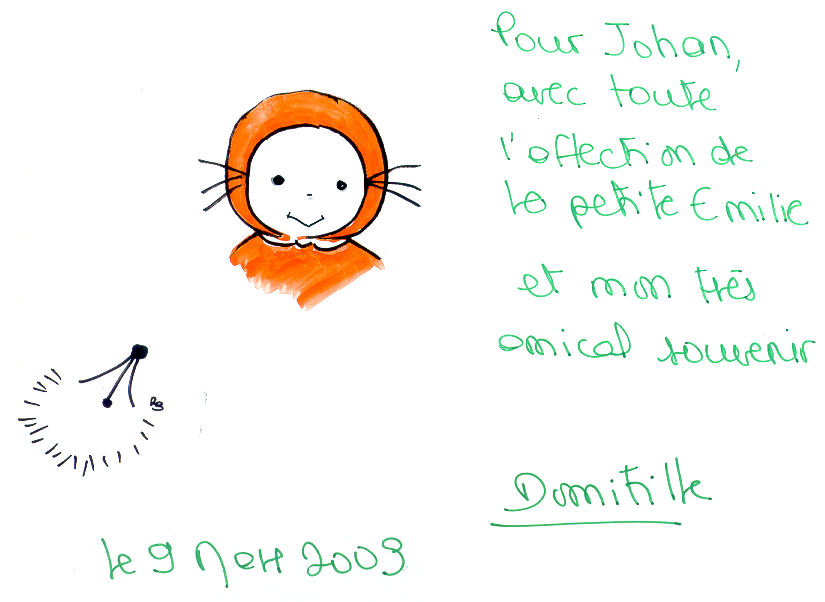 Pour Johan,
avec toute
l'affection de
la petite Emilie
et mon très
amical souvenir
Domitille
le 9 Mars 2003